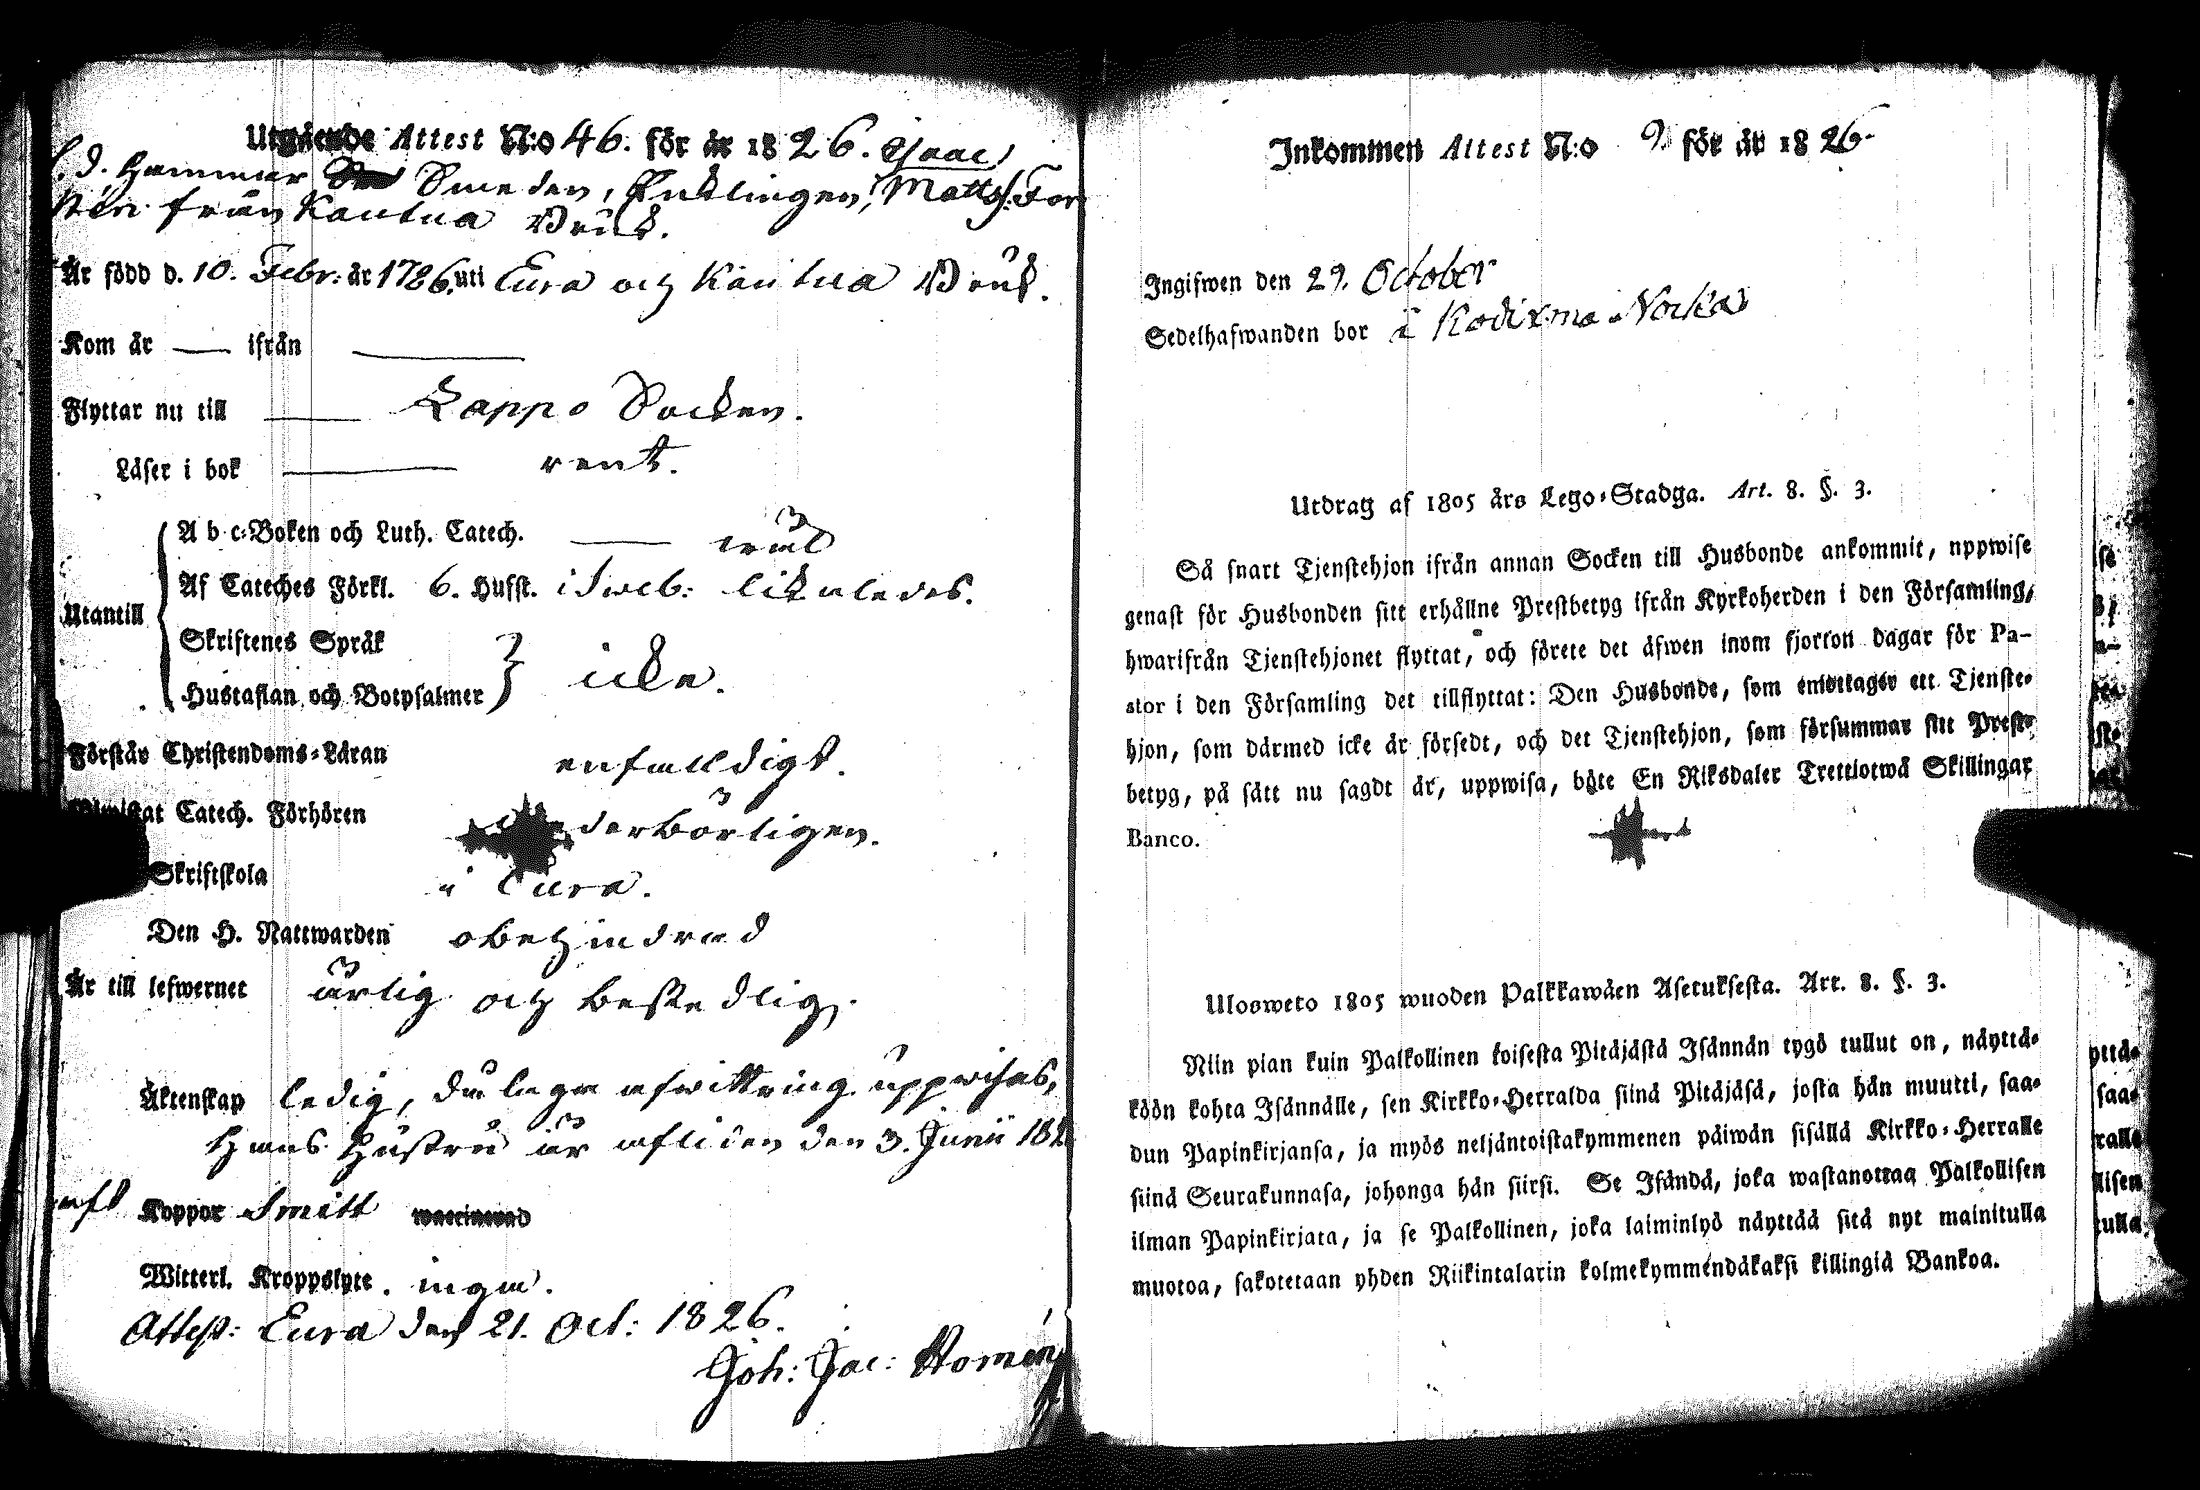 Utgående Attest N:o 46. för år 1826. Isaac
f. d. Hammar Smeden, Enklingen, Matts. For
stén från Kautua Bruk.
Är född d. 10. Febr: år 1786. uti Eura och Kautua Bruk.
Kom år — ifrån —
Flyttar nu till — Lappo Socken.
Läser i bok — rent.
Utantill
A b c-Boken och Luth. Catech. — wäl
Af Cateches Förkl. 6. Hufst. i Sweb: likaledes.
Skriftenes Språk
Hustaflan och Botpsalmer } icke.
Förstår Christendoms-Läran enfaldigt.
Catech. Förhören derbörligen.
Skriftskola i Eura.
Den H. Nattwarden obehindrad
Är till lefwernet ärlig och beskedlig.
Äktenskap ledig, då laga afwittring uppwisas,
Hans Hustru är afliden den 3. Junii 182
haft Koppor Smitt
Witterl. Kroppslyte. inga.
Attest: Eura den 21. Oct: 1826.
Joh: Jac:
Inkommen Attest N:o 9. för år 1826.
Ingifwen den 29. October
Sedelhafwanden bor i Kodixma Norka
Utdrag af 1805 års Lego-Stadga. Art. 8. §. 3.
Så snart Tjenstehjon ifrån annan Socken till Husbonde ankommit, uppwise
genast för Husbonden sitt erhållne Prestbetyg ifrån Kyrkoherden i den Församling,
hwarifrån Tjenstehjonet flyttat, och förete det äfwen inom fjorton dagar för Pa-
stor i den Församling det tillflyttat: Den Husbonde, som emottager ett Tjenste-
hjon, som därmed icke är försedt, och det Tjenstehjon, som försummar sitt Prest-
betyg, på sätt nu sagdt är, uppwisa, böte En Riksdaler Trettiotwå Skillingar
Banco.
Ulosweto 1805 wuoden Palkkawäen Asetuksesta. Art. 8. §. 3.
Niin pian kuin Palkollinen toisesta Pitäjästä Isännän tygö tullut on, näyttä-
köön kohta Isännälle, sen Kirkko-Herralda siinä Pitäjäsä, josta hän muutti, saa-
dun Papinkirjansa, ja myös neljäntoistakymmenen päiwän sisällä Kirkko-Herralle
siinä Seurakunnasa, johonga hän siirsi. Se Isändä, joka wastanottaa Palkollisen
ilman Papinkirjata, ja se Palkollinen, joka laiminlyö näyttää sitä nyt mainitulla
muotoa, sakotetaan yhden Riikintalarin kolmekymmendäkaksi killingiä Bankoa.